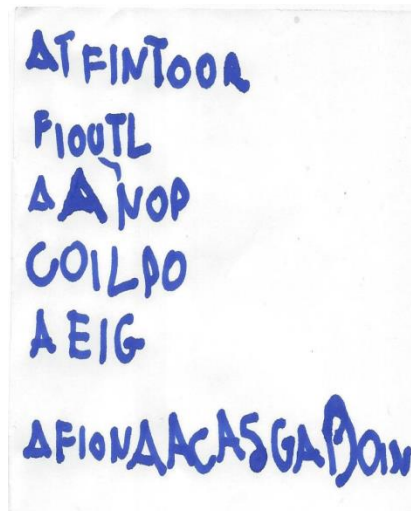 ATFINTOOR
FIOUTL
AAÑOP
COILPO
AEIG
AFIONAACASGAPOIN